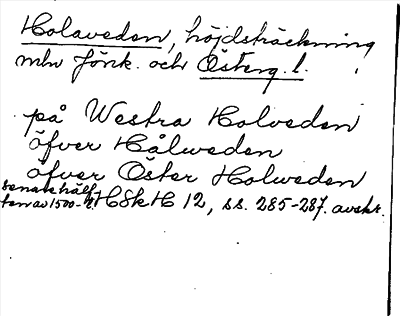 Holaveden, höjdsträckning
mlm Jönk. och Österg. l.
på Westra Holveden
öfver Hålweden
öfver Öster Holweden
senare hälf-
ten av 1500-t. HSkH 12, ss. 285-287. avskr.